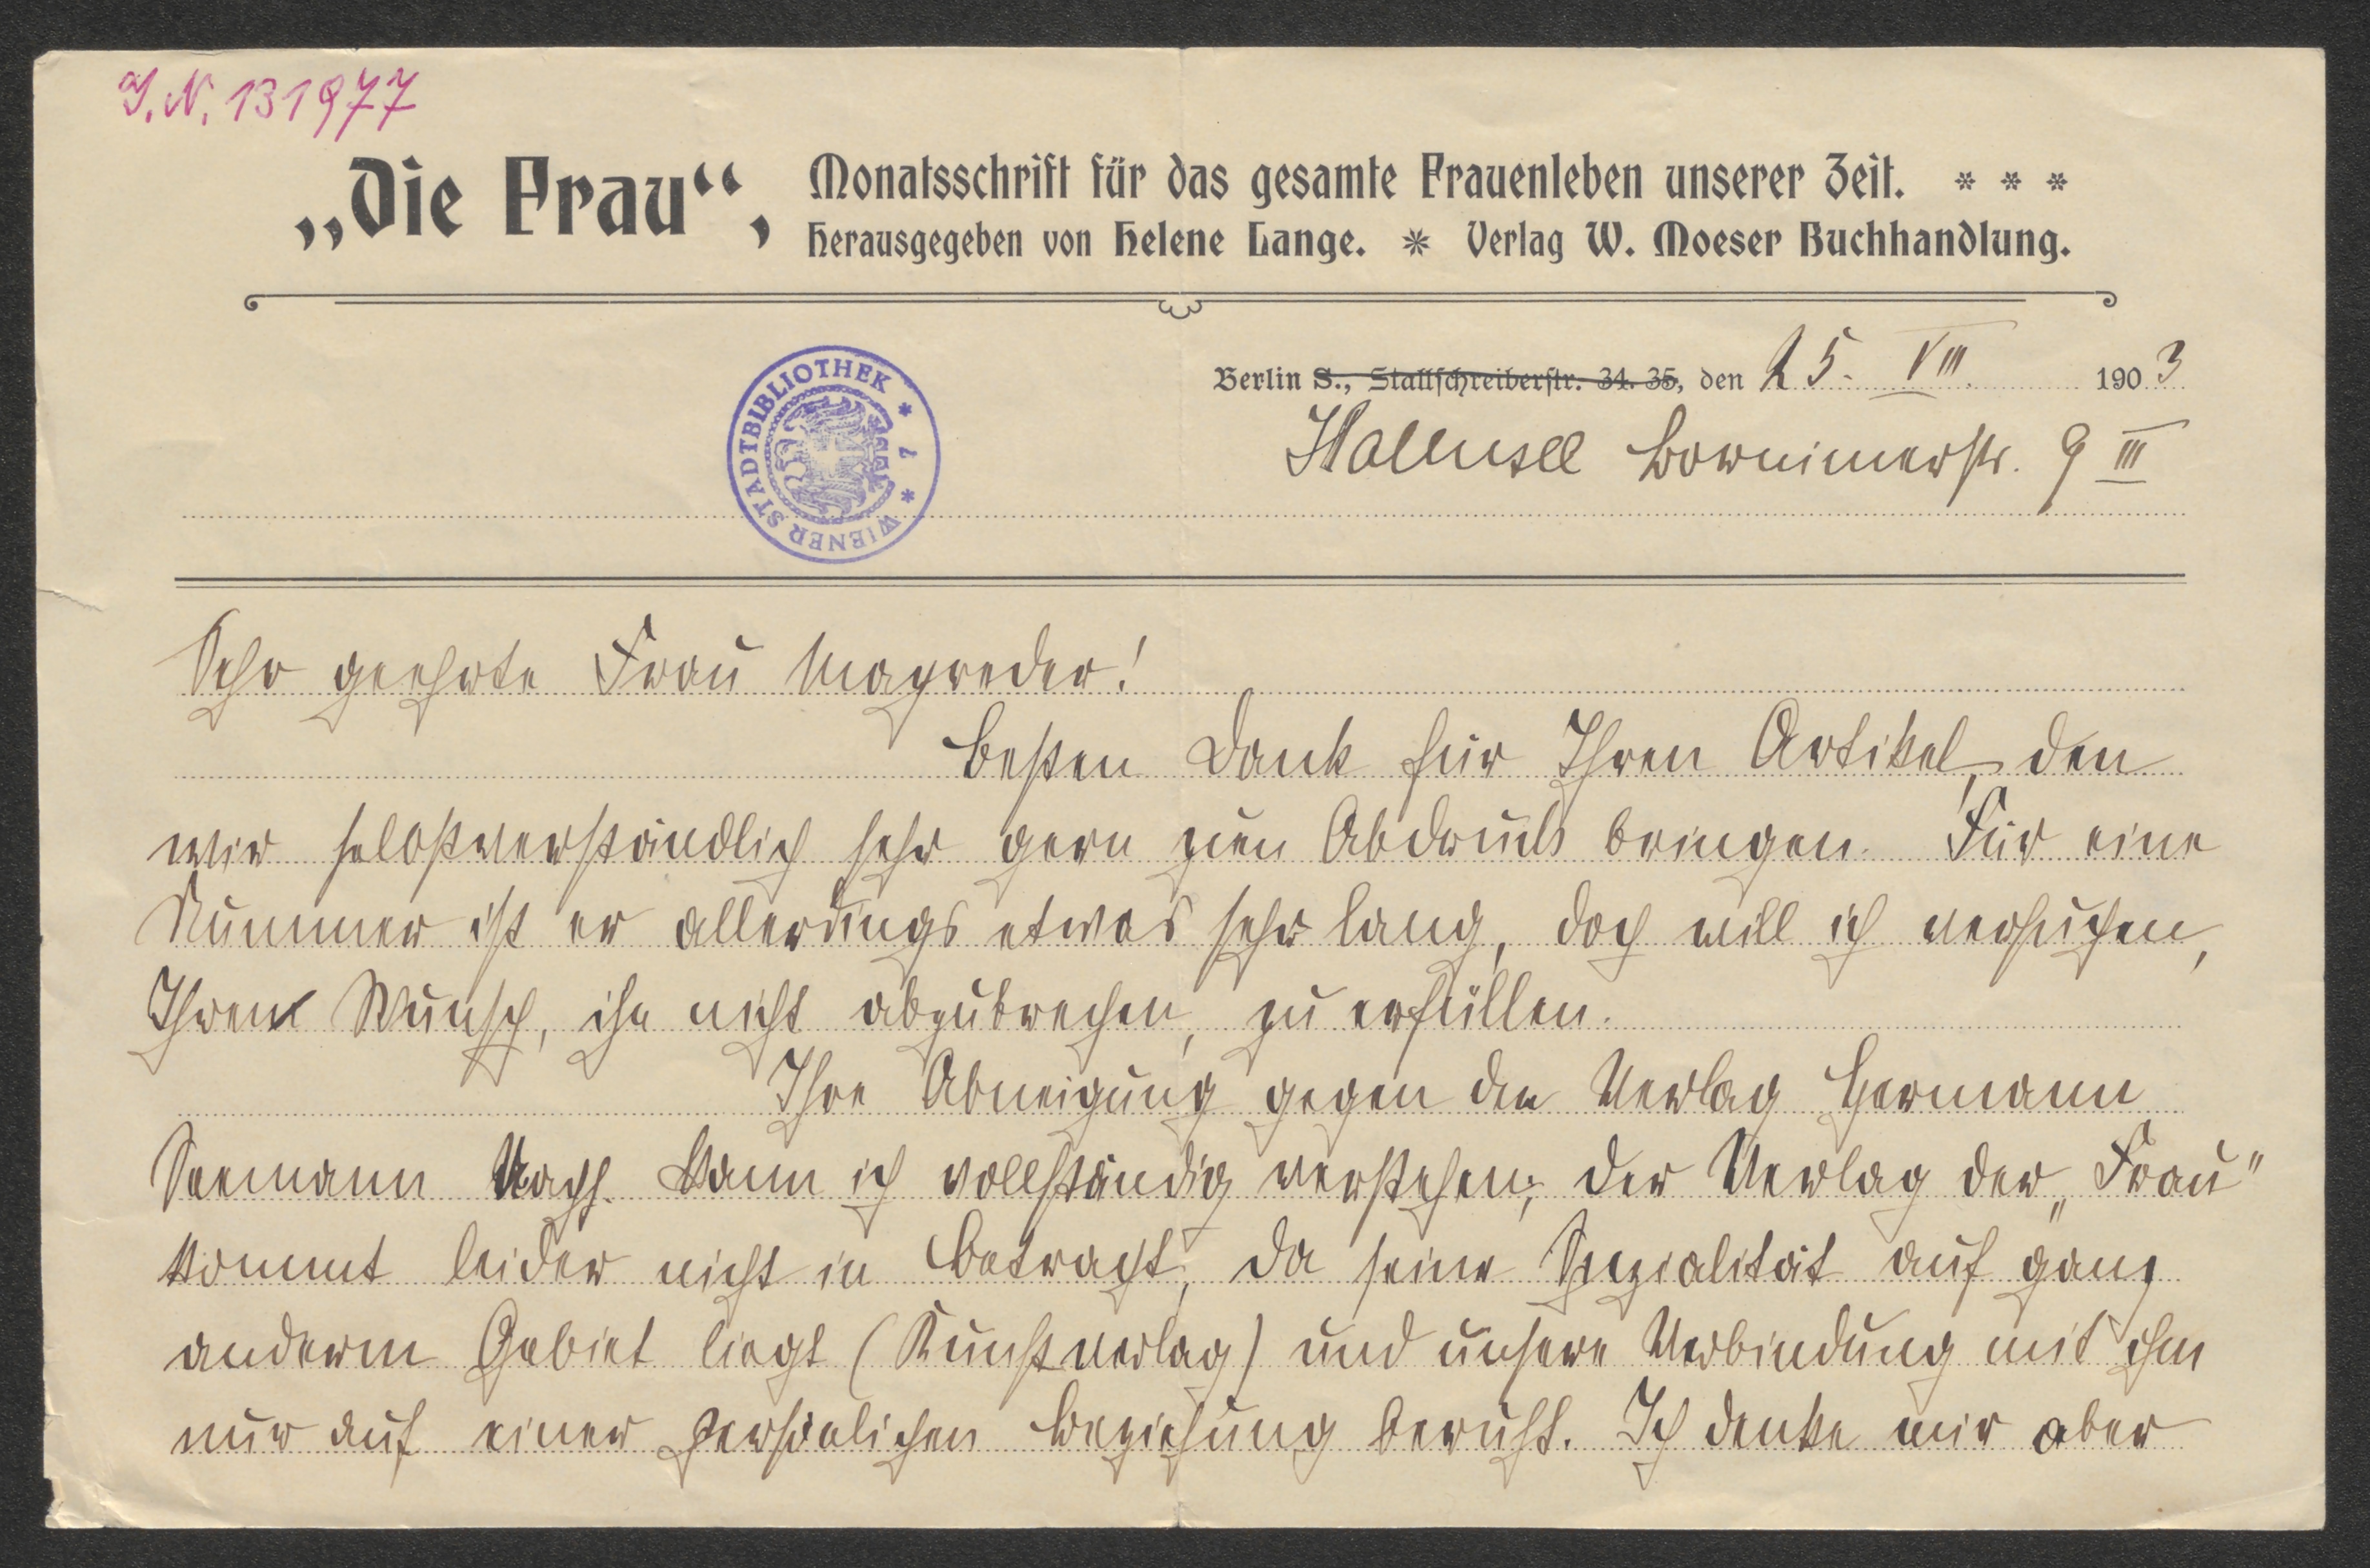 I.N. 131977
„Die Frau“, Monatsschrift für das gesamte Frauenleben unserer Zeit. * * *
Herausgegeben von Helene Lange. * Verlag W. Moeser Buchhandlung.
Berlin S., Stallschreiberstr. 34. 35, den 25. VIII. 1903
Halensee Bornimerstr. 9 III
WIENER STADTBIBLIOTHEK * 7 *
Sehr geehrte Frau Mayreder!
Besten Dank für Ihren Artikel, den
wir selbstverständlich sehr gern zum Abdruck bringen. Für eine
Nummer ist er allerdings etwas sehr lang, doch will ich versuchen,
Ihren Wunsch, ihn nicht abzubrechen, zu erfüllen.
Ihre Abneigung gegen den Verlag Hermann
Seemann Nachf. kann ich vollständig verstehen; der Verlag der „Frau“
kommt leider nicht in Betracht, da seine Spezialität auf ganz
anderm Gebiet liegt (Kunstverlag) und unsere Verbindung mit ihm
nur auf einer persönlichen Beziehung beruht. Ich denke mir aber